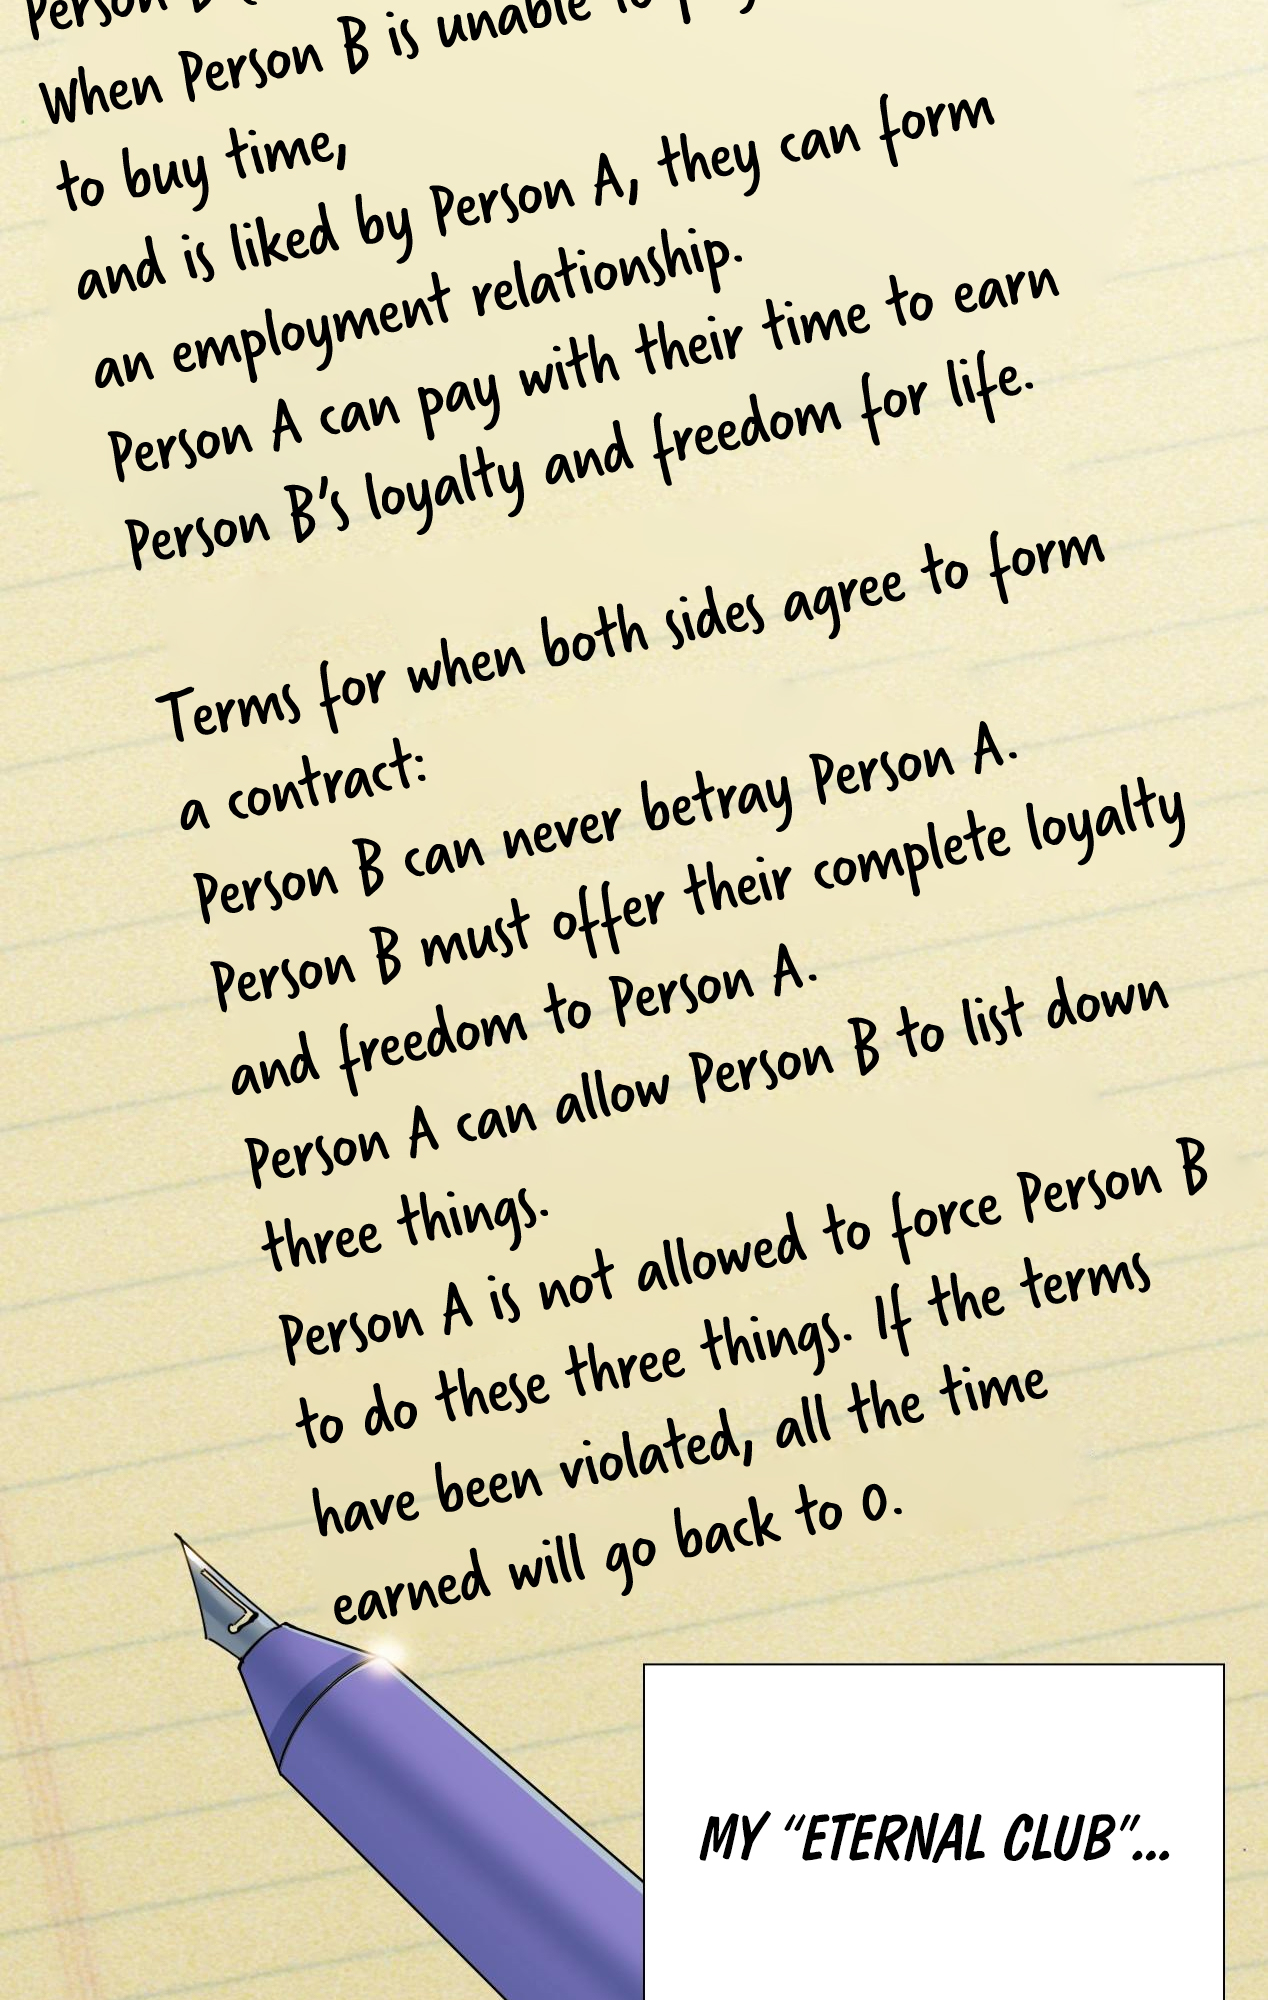 Person B
When Person B is unable to pay
to buy time,
and is liked by Person A, they can form
an employment relationship.
Person A can pay with their time to earn
Person B's loyalty and freedom for life.
Terms for when both sides agree to form
a contract:
Person B can never betray Person A.
Person B must offer their complete loyalty
and freedom to Person A.
Person A can allow Person B to list down
three things.
Person A is not allowed to force Person B
to do these three things. If the terms
have been violated, all the time
earned will go back to 0.
MY "ETERNAL CLUB"...